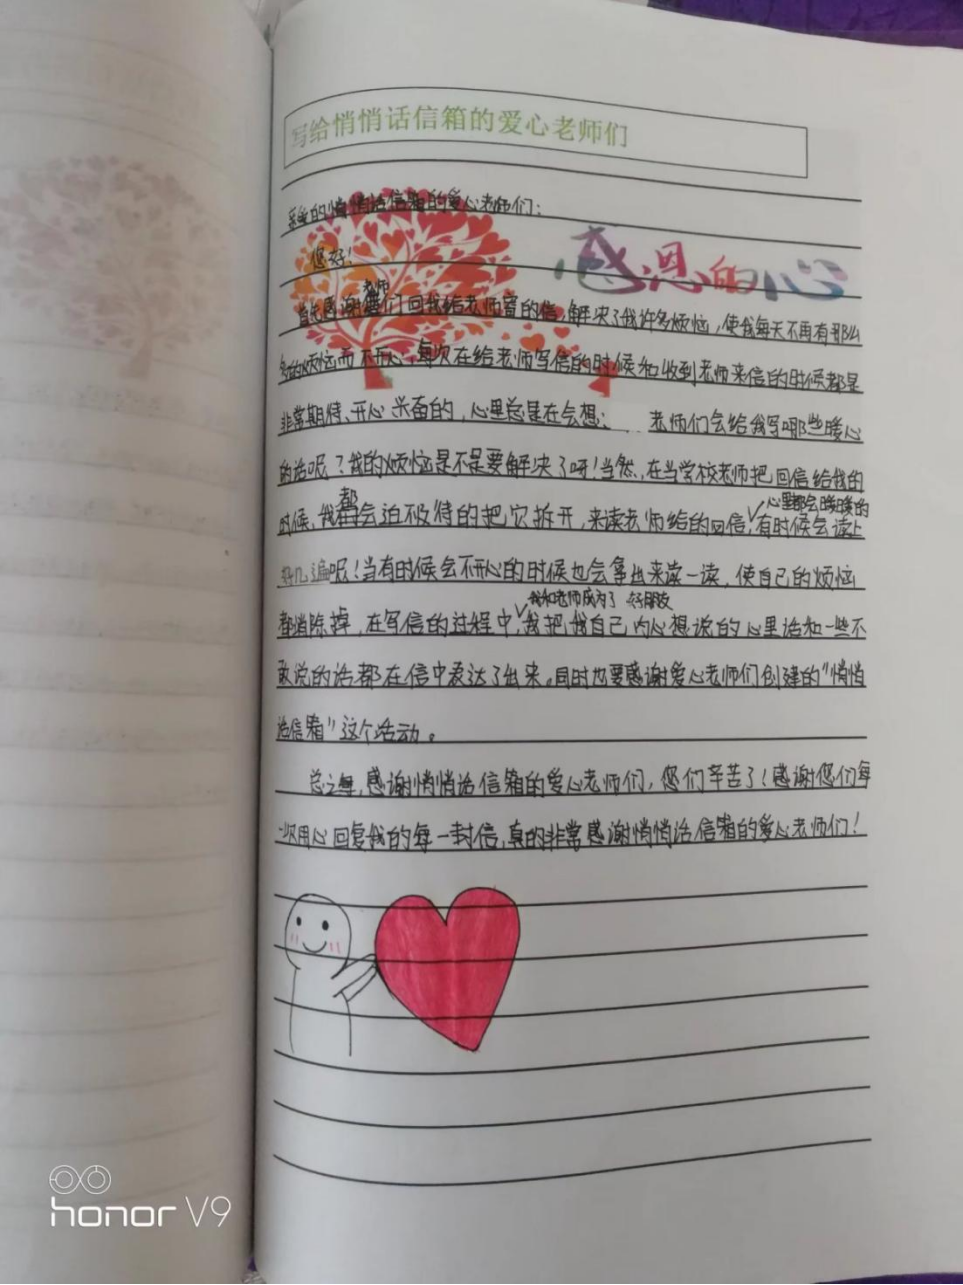 写给悄悄话信箱的爱心老师们
亲爱的悄悄话信箱的爱心老师们:
感恩的心
您好!
老师
首先感谢 们回我给老师寄的信,解决了我许多烦恼,使我每天不再有那么
多的烦恼而不开心,每次在给老师写信的时候和收到老师来信的时候都是
非常期待、开心 面的,心里总是在会想: 老师们会给我写哪些暖心
的话呢?我的烦恼是不是要解决了呀!当然,在当学校老师把回信给我的
都
心里都会暖暖的
时候,我 会迫不及待的把它拆开,来读老师给的回信,有时候会读上
好几遍呢!当有时候会不开心的时候也会拿出来读一读,使自己的烦恼
我和老师成为了 好朋友
都消除掉,在写信的过程中,我把我自己内心想说的心里话和一些不
敢说的话都在信中表达了出来。同时也要感谢爱心老师们创建的“悄悄
话信箱”这个活动。
总之 ,感谢悄悄话信箱的爱心老师们,您们辛苦了!感谢您们每
一次用心回复我的每一封信,真的非常感谢悄悄话信箱的爱心老师们!
honor V9